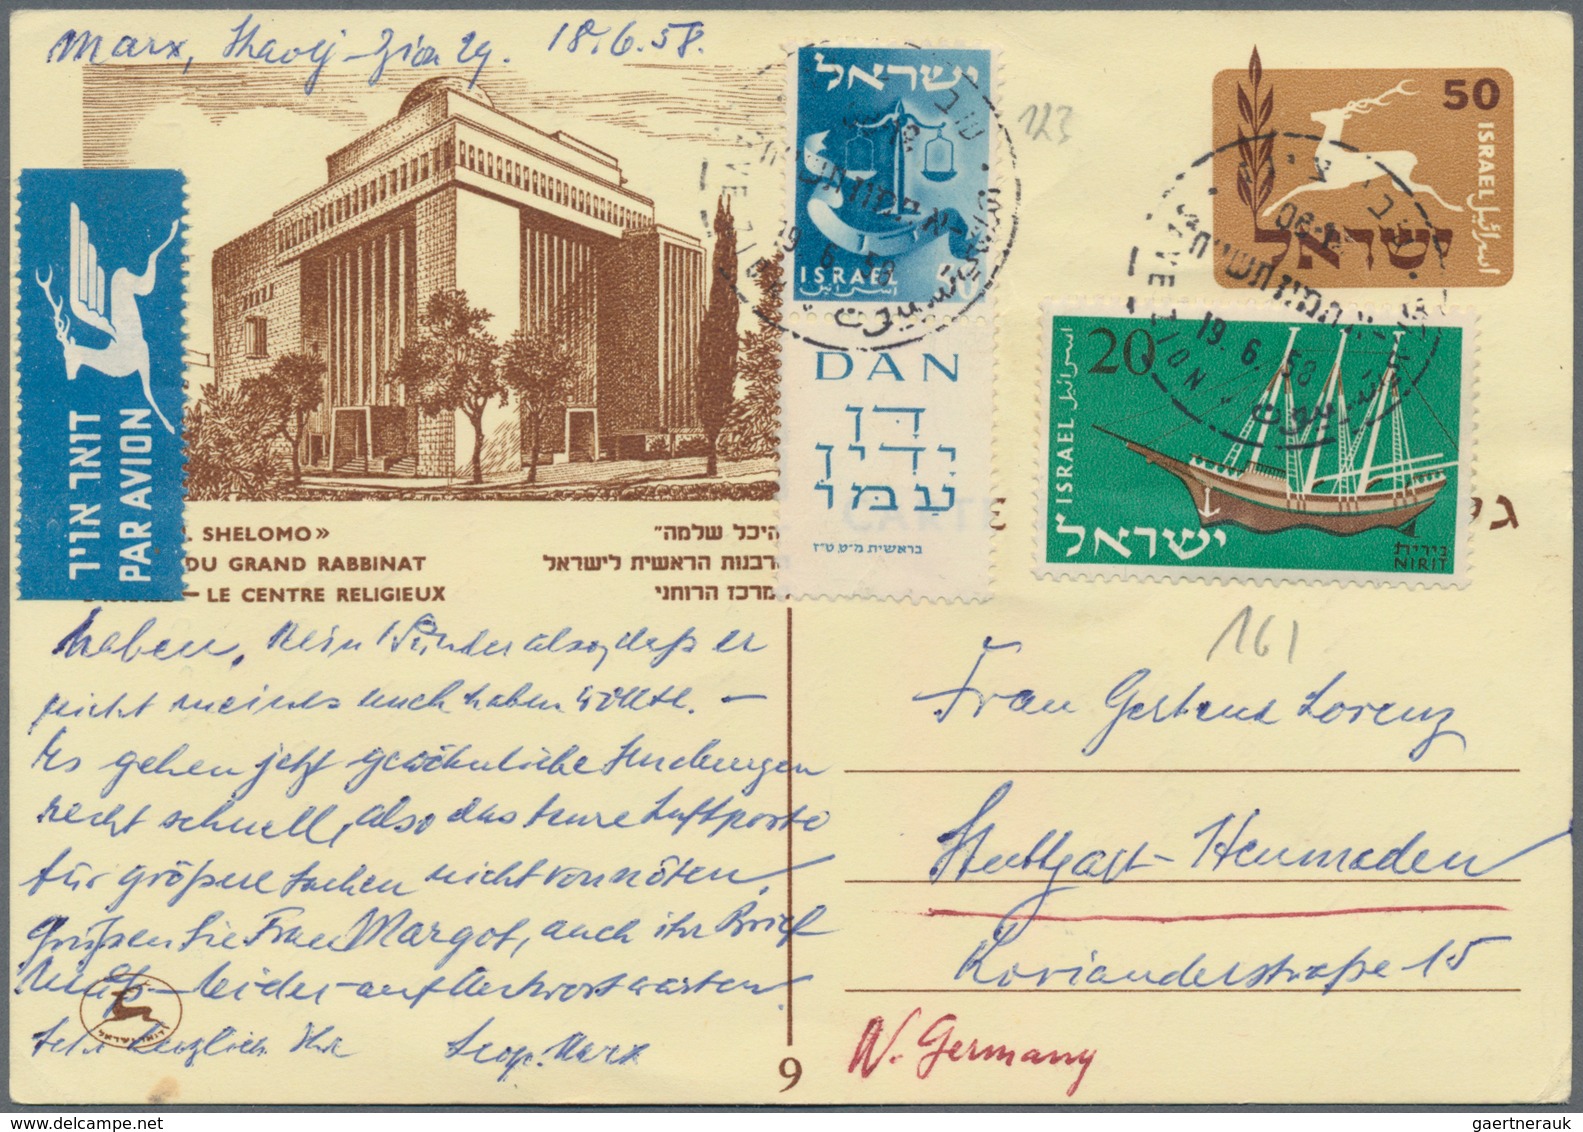 Marx, Shavej-Zion 29. 18.6.58.
ישראל
ISRAEL
DAN
דן
ידין
עמו
בראשית מ"ט, ט"ז
123
50
ISRAEL
اسرائيل
ישראל
19. 6. 58
SHAVE ZION
19. 6. 58
20
ISRAEL اسرائيل
ישראל
נירית
NIRIT
CARTE
דואר אויר
PAR AVION
L SHELOMO»
DU GRAND RABBINAT
– LE CENTRE RELIGIEUX
היכל שלמה"
הרבנות הראשית לישראל
המרכז הרוחני
haben. Kein Wunder also, daß er
nicht meines auch haben wollte. –
Es gehen jetzt gewöhnliche Sendungen
recht schnell, also das teure Luftporto
für größere Sachen nicht vonnöten.
Grüßen Sie Frau Margot, auch ihr Brief
muß – leider – auf Antwort warten.
Sehr herzlich Ihr Leop. Marx
9
161
Frau Gertrud Lorenz
Stuttgart-Heumaden
Korianderstraße 15
W. Germany
gaertnerauk